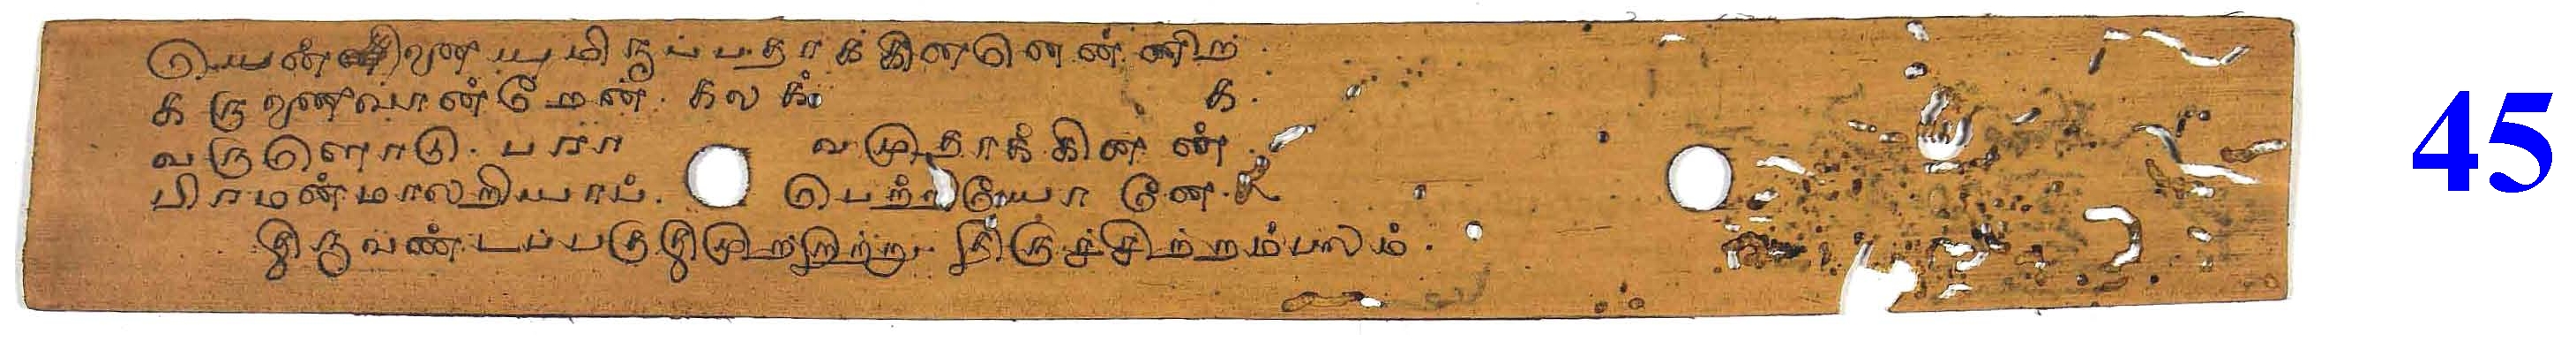 யென்னையுமிருப்பதாக்கினனென்னிற்.
கருணைவான்றேன். கலக்க க.
வருளொடு. பரா வமுதாக்கினன்.
பிரமன்மாலறியாப். பெற்றியோனே.
திருவண்டப்பகுதிமுற்றிற்று. திருச்சிற்றம்பலம்.
45